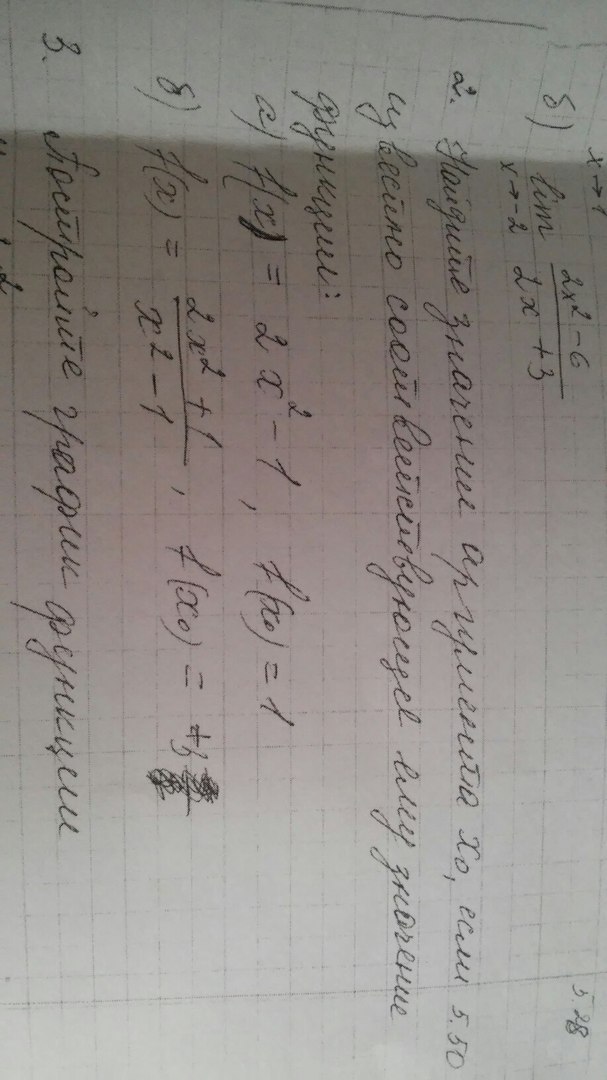 x → 1
5.28
б) lim x → -2 (2x² - 6)/(2x + 3)
2. Найдите значение аргумента x₀, если 5.50
известно соответствующее ему значение
функции:
а) f(x) = 2x² - 1, f(x₀) = 1
б) f(x) = (2x² + 1)/(x² - 1), f(x₀) =
3. Постройте график функции